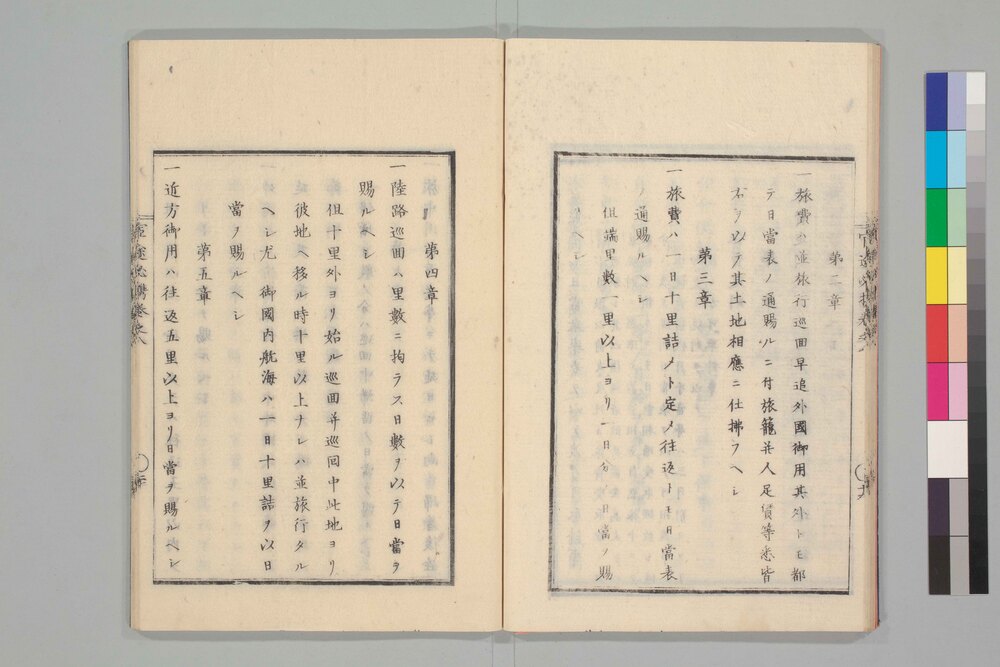 第二章
一旅費ハ並旅行巡回早追外國御用其外トモ都
テ日當表ノ通賜ルニ付旅籠并人足賃等悉皆
右ヲ以テ其土地相應ニ仕拂フヘシ
第三章
一旅費ハ一日十里詰メト定メ往返トモ日當表
ノ通賜ルヘシ
但端里數一里以上ヨリ一日分ノ日當ヲ賜
ルヘシ
第四章
一陸路巡回ハ里數ニ拘ラス日數ヲ以テ日當ヲ
賜ルヘシ
但十里外ヨリ始ル巡回并巡回中此地ヨリ
彼地ヘ移ル時十里以上ナレハ並旅行タル
ヘシ尤御國内航海ハ一日十里詰ヲ以日
當ヲ賜ルヘシ
第五章
一近方御用ハ往返五里以上ヨリ日當ヲ賜ルヘシ